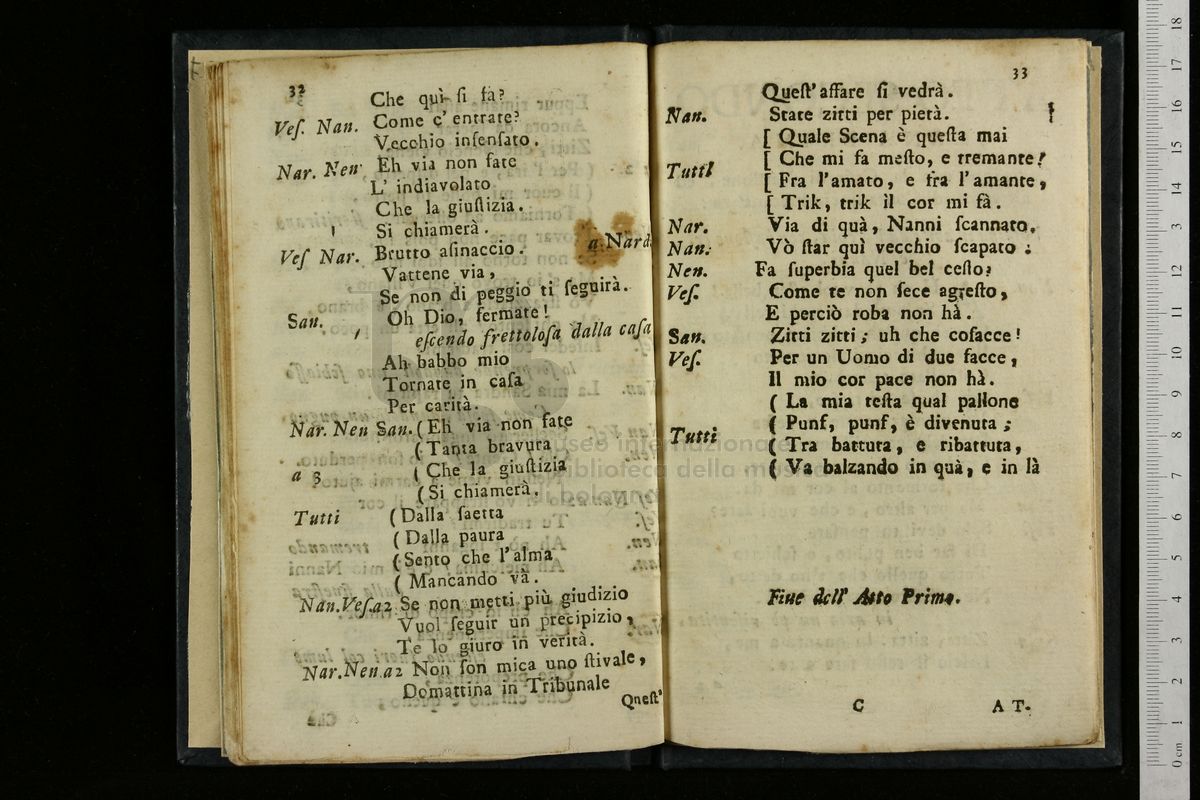 32
Che quì ſi fa?
Veſ. Nan. Come c' entrate?
Vecchio inſenſato.
Nar. Nen. Eh via non fate
L' indiavolato
Che la giuſtizia.
Si chiamerà.
Veſ Nar. Brutto aſinaccio. a Nard.
Vattene via,
Se non di peggio ti ſeguirà.
San. Oh Dio, fermate!
eſcendo frettoloſa dalla caſa
Ah babbo mio
Tornate in caſa
Per carità.
Nar. Nen San. (Eh via non fate
(Tanta bravura
a 3 (Che la giuſtizia
(Si chiamerà.
Tutti (Dalla ſaetta
(Dalla paura
(Sento che l'alma
(Mancando và.
Nan. Veſ. a 2 Se non metti più giudizio
Vuol ſeguir un precipizio,
Te lo giuro in verità.
Nar. Nen. a 2 Non ſon mica uno ſtivale,
Domattina in Tribunale
Queſt'
33
Queſt' affare ſi vedrà.
Nan. State zitti per pietà.
[ Quale Scena è queſta mai
[ Che mi fa meſto, e tremante!
Tutti
[ Fra l'amato, e fra l'amante,
[ Trik, trik il cor mi fà.
Nar. Via di quà, Nanni ſcannato,
Nan. Vò ſtar quì vecchio ſcapato;
Nen. Fa ſuperbia quel bel ceſto?
Veſ. Come te non fece agreſto,
E perciò roba non hà.
San. Zitti zitti; uh che coſacce!
Veſ. Per un Uomo di due facce,
Il mio cor pace non hà.
( La mia teſta qual pallone
( Punf, punf, è divenuta;
Tutti
( Tra battuta, e ribattuta,
( Va balzando in quà, e in là
Fine dell' Atto Primo.
C
A T-
museo internazionale
e biblioteca della musica
di bologna
0 cm 1 2 3 4 5 6 7 8 9 10 11 12 13 14 15 16 17 18